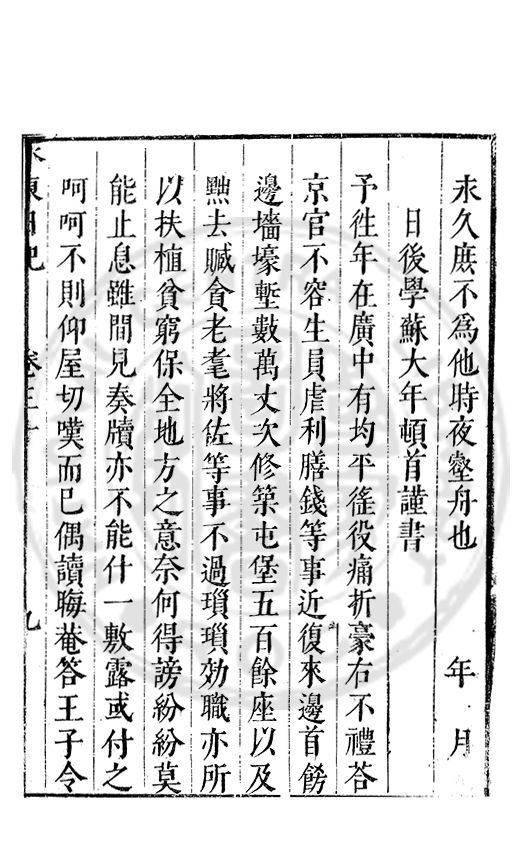 永久庶不爲他時夜壑舟也　　年　月
日後學蘇大年頓首謹書
予徃年在廣中有均平徭役痛折豪右不禮荅
京官不容生員虐利膳錢等事近復來邊首餝
邊墻壕塹數萬丈次修築屯堡五百餘座以及
㸃去贓貪老耄將佐等事不過瑣瑣効職亦所
以扶植貧窮保全地方之意奈何得謗紛紛莫
能止息雖間見奏牘亦不能什一敷露或付之
呵呵不則仰屋切嘆而已偶讀晦菴答王子令
東日記　卷三十　九